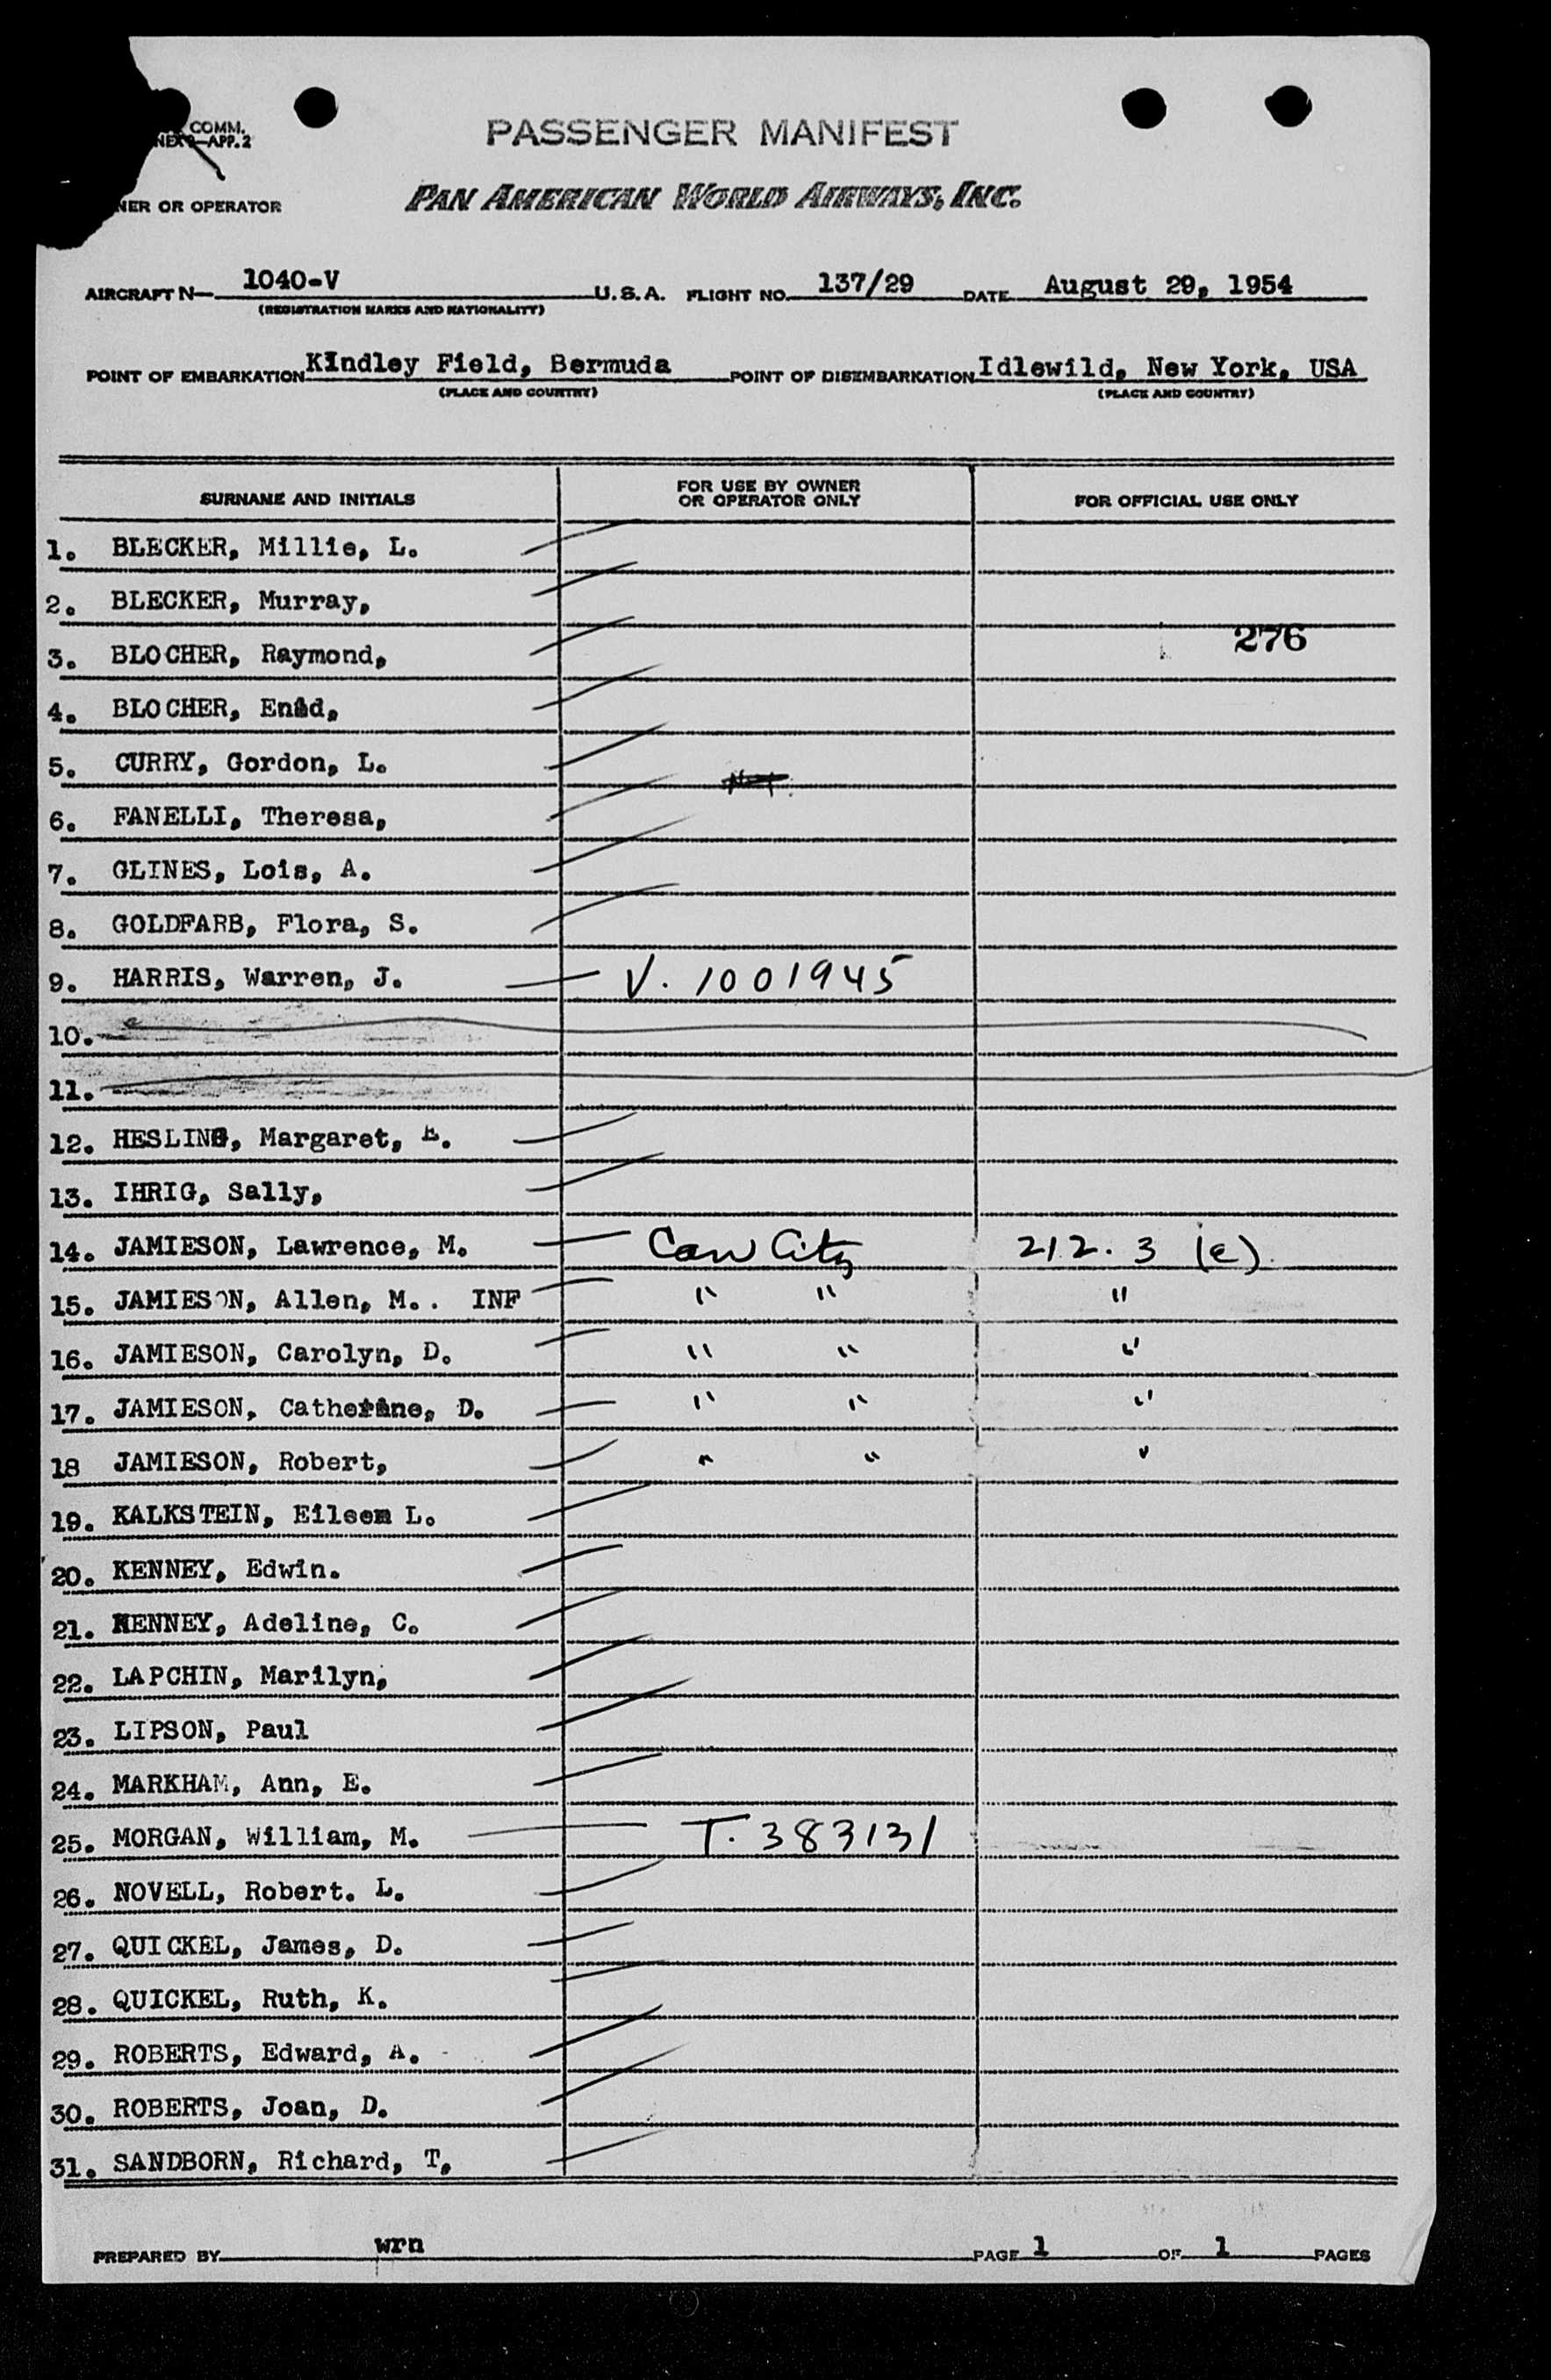 COMM.
APP. 2
NER OR OPERATOR
PASSENGER MANIFEST
PAN AMERICAN WORLD AIRWAYS, INC.
AIRCRAFT N— 1040-V U.S.A. FLIGHT NO. 137/29 DATE August 29, 1954
(REGISTRATION MARKS AND NATIONALITY)
POINT OF EMBARKATION KIndley Field, Bermuda POINT OF DISEMBARKATION Idlewild, New York, USA
(PLACE AND COUNTRY) (PLACE AND COUNTRY)
SURNAME AND INITIALS FOR USE BY OWNER OR OPERATOR ONLY FOR OFFICIAL USE ONLY
1. BLECKER, Millie, L.
2. BLECKER, Murray,
276
3. BLOCHER, Raymond,
4. BLOCHER, Enid,
5. CURRY, Gordon, L.
6. FANELLI, Theresa,
7. GLINES, Lois, A.
8. GOLDFARB, Flora, S.
9. HARRIS, Warren, J. V. 1001945
10.
11.
12. HESLING, Margaret, E.
13. IHRIG, Sally,
14. JAMIESON, Lawrence, M. Can Citz 212.3 (e).
15. JAMIESON, Allen, M.. INF " " "
16. JAMIESON, Carolyn, D. " " "
17. JAMIESON, Catherine, D. " " "
18 JAMIESON, Robert, " " "
19. KALKSTEIN, Eileen L.
20. KENNEY, Edwin.
21. KENNEY, Adeline, C.
22. LAPCHIN, Marilyn,
23. LIPSON, Paul
24. MARKHAM, Ann, E.
25. MORGAN, William, M. T. 383131
26. NOVELL, Robert. L.
27. QUICKEL, James, D.
28. QUICKEL, Ruth, K.
29. ROBERTS, Edward, A.
30. ROBERTS, Joan, D.
31. SANDBORN, Richard, T,
PREPARED BY wrn PAGE 1 OF 1 PAGES